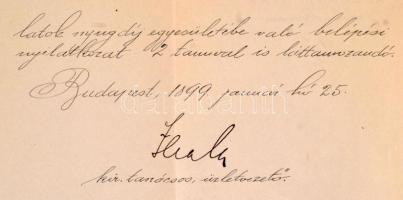 latok nyugdíj egyesületébe való belépési
nyilatkozat 2 tanuval is láttamozandó.
Budapest, 1899. január hó 25.
kir. tanácsos, üzletvezető.